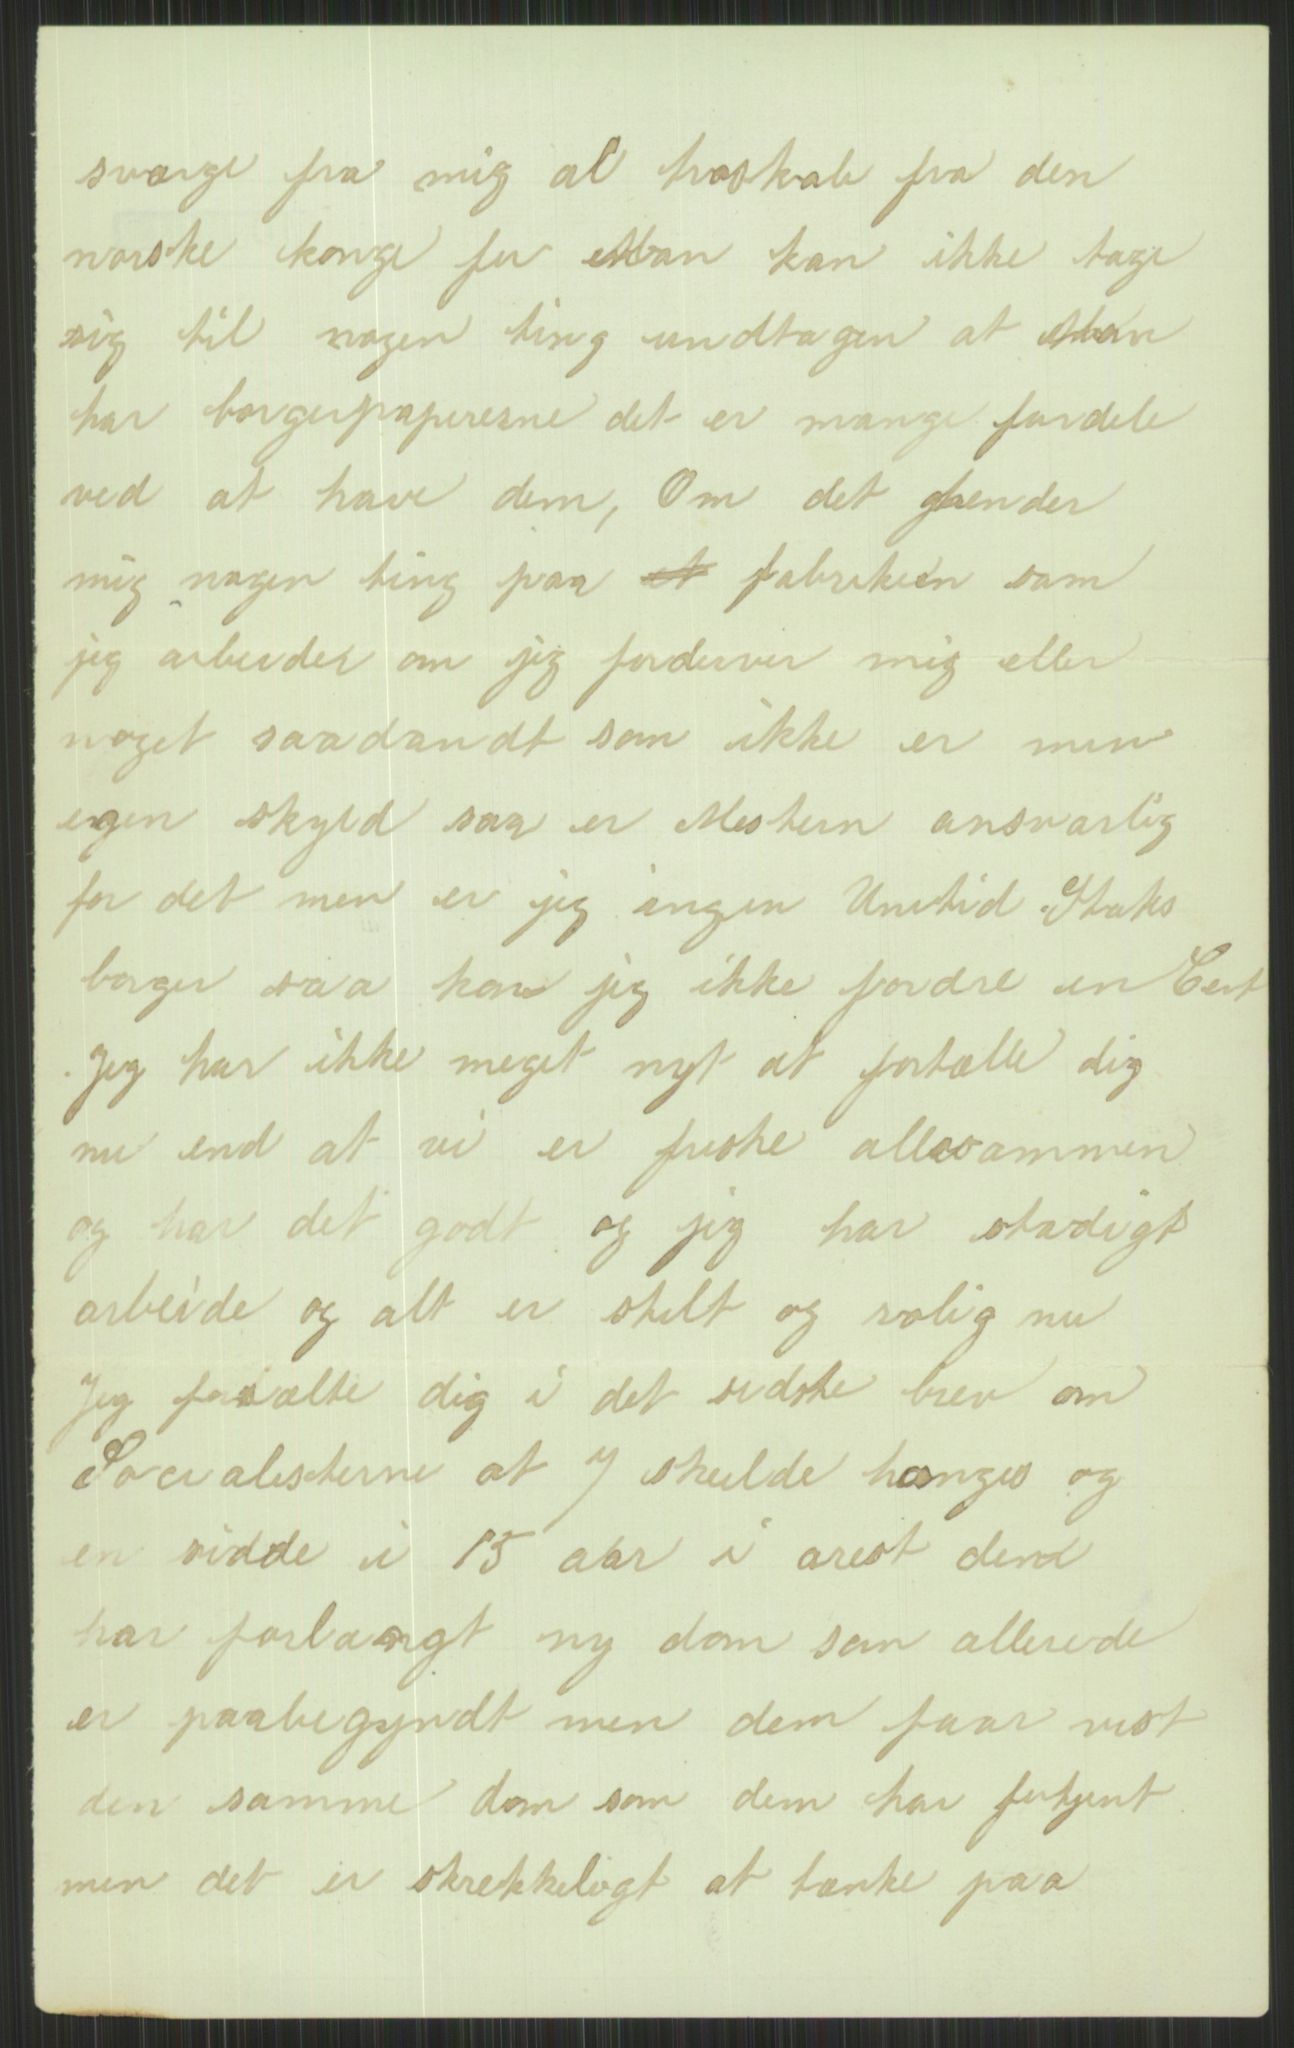 sværge fra mig al troskab fra den
norske konge før Man kan ikke tage
sig til nogen ting undtagen at Man
har borgerpaperesne det er mange fordele
ved at have dem, Om det hender
mig nogen ting paa fabrikken som
jeg arbeider om jeg forderver mig eller
noget saadandt som ikke er min
egen skyld saa er Mestern ansvarlig
for det men er jeg ingen Unitid Stats
borger saa kan jeg ikke fordre en Cent
Jeg har ikke meget nyt at fortælle dig
nu end at vi er friske allesammen
og har det godt og jeg har stadigt
arbeide og alt er stilt og rolig nu
Jeg fortalte dig i det sidste brev om
Socialisterne at 7 skulde hænges og
en sidde i 15 aar i arest dem
har forlangt ny dom som allerede
er paabegyndt men dem faar vist
den samme dom som dem har fortjent
men det er skrekkeligt at tænke paa